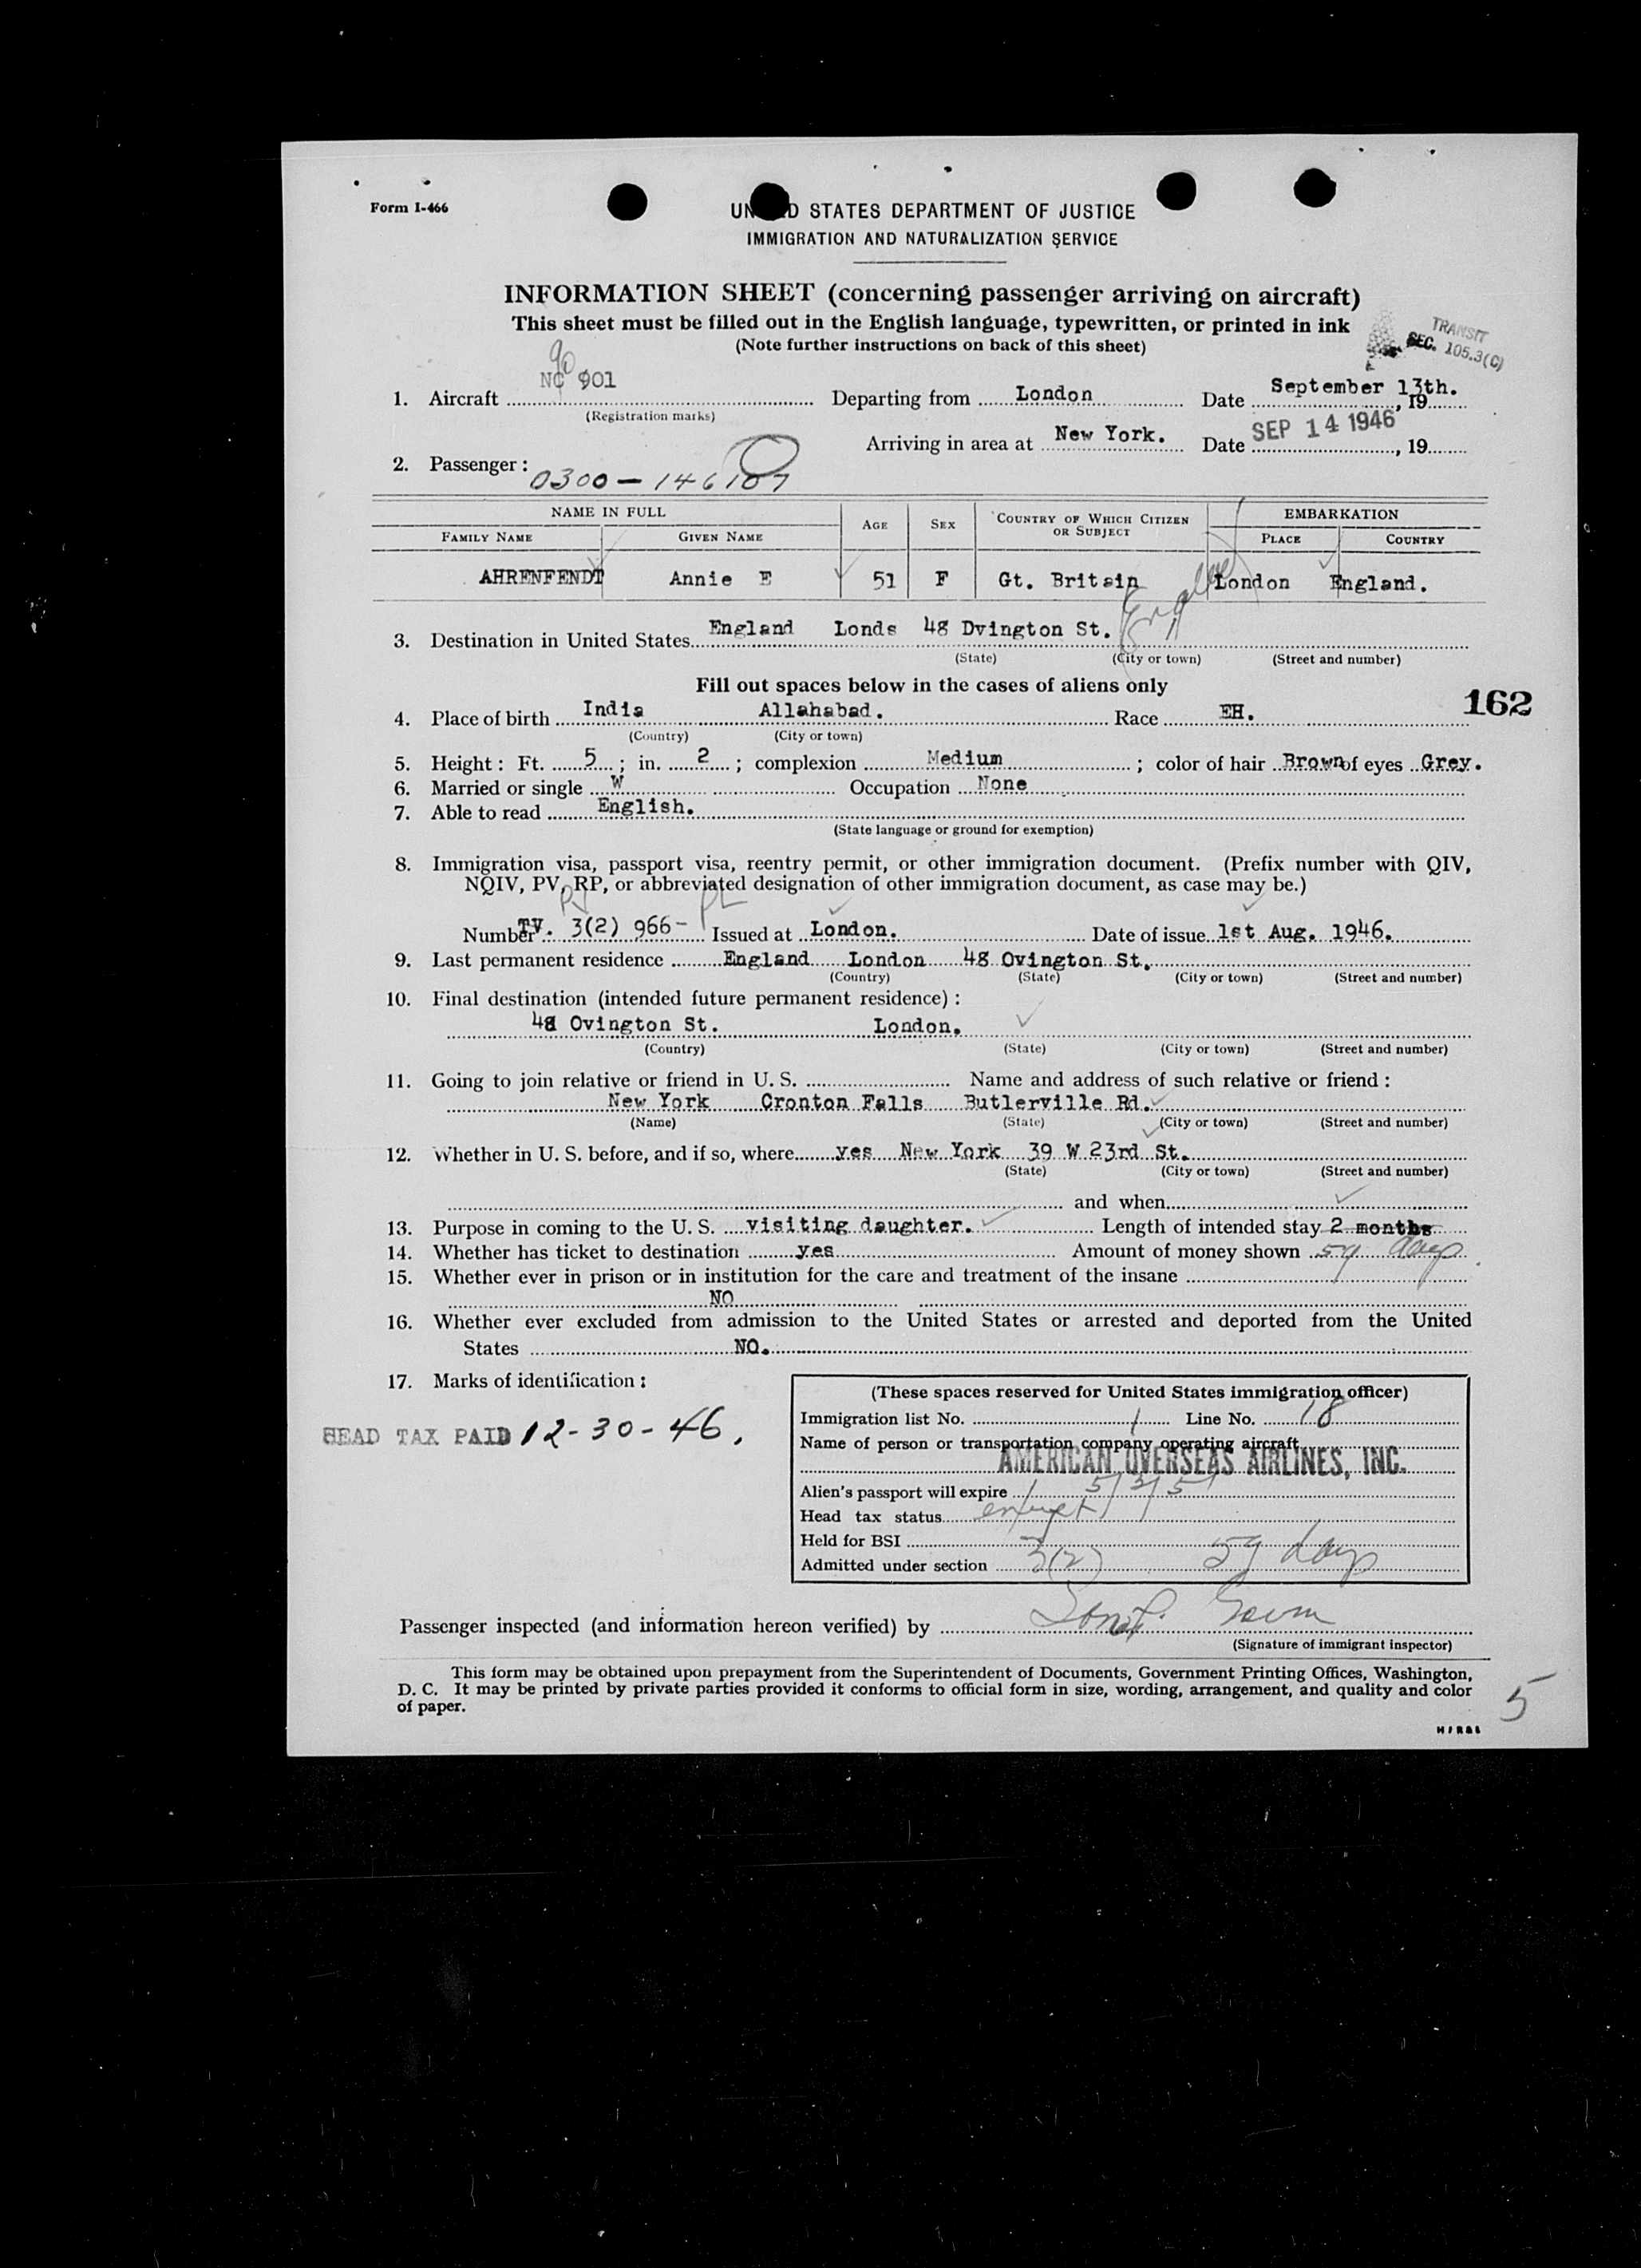 Form I-466
UN D STATES DEPARTMENT OF JUSTICE
IMMIGRATION AND NATURALIZATION SERVICE
INFORMATION SHEET (concerning passenger arriving on aircraft)
This sheet must be filled out in the English language, typewritten, or printed in ink
(Note further instructions on back of this sheet)
TRANSIT
SEC. 105.3(C)
90
NC 901
1. Aircraft Departing from London Date September 13th., 19
(Registration marks)
Arriving in area at New York. Date SEP 14 1946, 19
2. Passenger: 0300 - 146107
NAME IN FULL AGE SEX COUNTRY OF WHICH CITIZEN OR SUBJECT EMBARKATION
FAMILY NAME GIVEN NAME PLACE COUNTRY
AHRENFENDT Annie E 51 F Gt. Britain London England.
England
3. Destination in United States England Londs 48 Dvington St.
(State) (City or town) (Street and number)
Fill out spaces below in the cases of aliens only
162
4. Place of birth India Allahabad. Race EH.
(Country) (City or town)
5. Height: Ft. 5; in. 2; complexion Medium; color of hair Brown of eyes Grey.
6. Married or single W Occupation None
7. Able to read English.
(State language or ground for exemption)
8. Immigration visa, passport visa, reentry permit, or other immigration document. (Prefix number with QIV,
NQIV, PV, RP, or abbreviated designation of other immigration document, as case may be.)
Number TV. 3(2) 966- Issued at London. Date of issue 1st Aug. 1946.
9. Last permanent residence England London 48 Ovington St.
(Country) (State) (City or town) (Street and number)
10. Final destination (intended future permanent residence):
48 Ovington St. London.
(Country) (State) (City or town) (Street and number)
11. Going to join relative or friend in U. S. Name and address of such relative or friend:
New York Cronton Falls Butlerville Rd.
(Name) (State) (City or town) (Street and number)
12. Whether in U. S. before, and if so, where yes New York 39 W 23rd St.
(State) (City or town) (Street and number)
and when
13. Purpose in coming to the U. S. visiting daughter. Length of intended stay 2 months
14. Whether has ticket to destination yes Amount of money shown 59 days
15. Whether ever in prison or in institution for the care and treatment of the insane
NO
16. Whether ever excluded from admission to the United States or arrested and deported from the United
States NO.
17. Marks of identification:
HEAD TAX PAID 12-30-46.
(These spaces reserved for United States immigration officer)
Immigration list No. 1 Line No. 18
Name of person or transportation company operating aircraft
AMERICAN OVERSEAS AIRLINES, INC.
Alien's passport will expire 5/3/51
Head tax status exempt
Held for BSI
Admitted under section 3(2) 59 days
Passenger inspected (and information hereon verified) by
(Signature of immigrant inspector)
This form may be obtained upon prepayment from the Superintendent of Documents, Government Printing Offices, Washington,
D. C. It may be printed by private parties provided it conforms to official form in size, wording, arrangement, and quality and color
of paper.
5